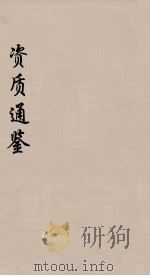 资质通鉴
研狗
mtoou.info